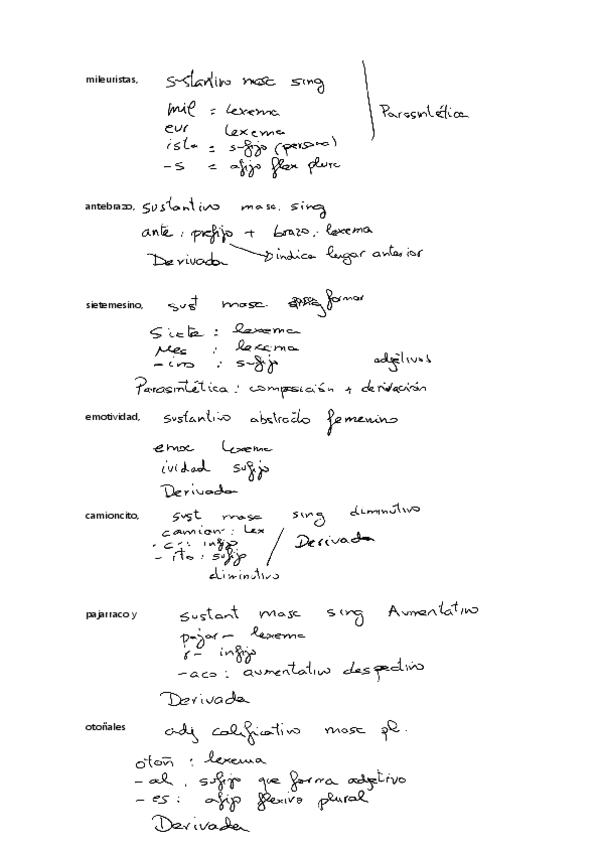 mileuristas, sustantivo masc sing
mil = lexema
eur lexema
ista = sufijo (persona)
-s = afijo flex plura
Parasintética
antebrazo, sustantivo masc. sing
ante: prefijo + brazo: lexema
Derivada indica lugar anterior
sietemesino, sust masc. formar
Siete : lexema
Mes : lexema
-ino : sufijo adjetivos
Parasintética : composición + derivación
emotividad, sustantivo abstracto femenino
emoc lexema
ividad sufijo
Derivada
camioncito, sust masc sing diminutivo
camion : Lex
- c- : infijo Derivada
- ito : sufijo
diminutivo
pajarraco y sustant masc sing Aumentativo
pajar- lexema
r- infijo
-aco : aumentativo despectivo
Derivada
otoñales adj calificativo masc pl.
otoñ : lexema
-al : sufijo que forma adjetivo
-es : afijo flexivo plural
Derivada